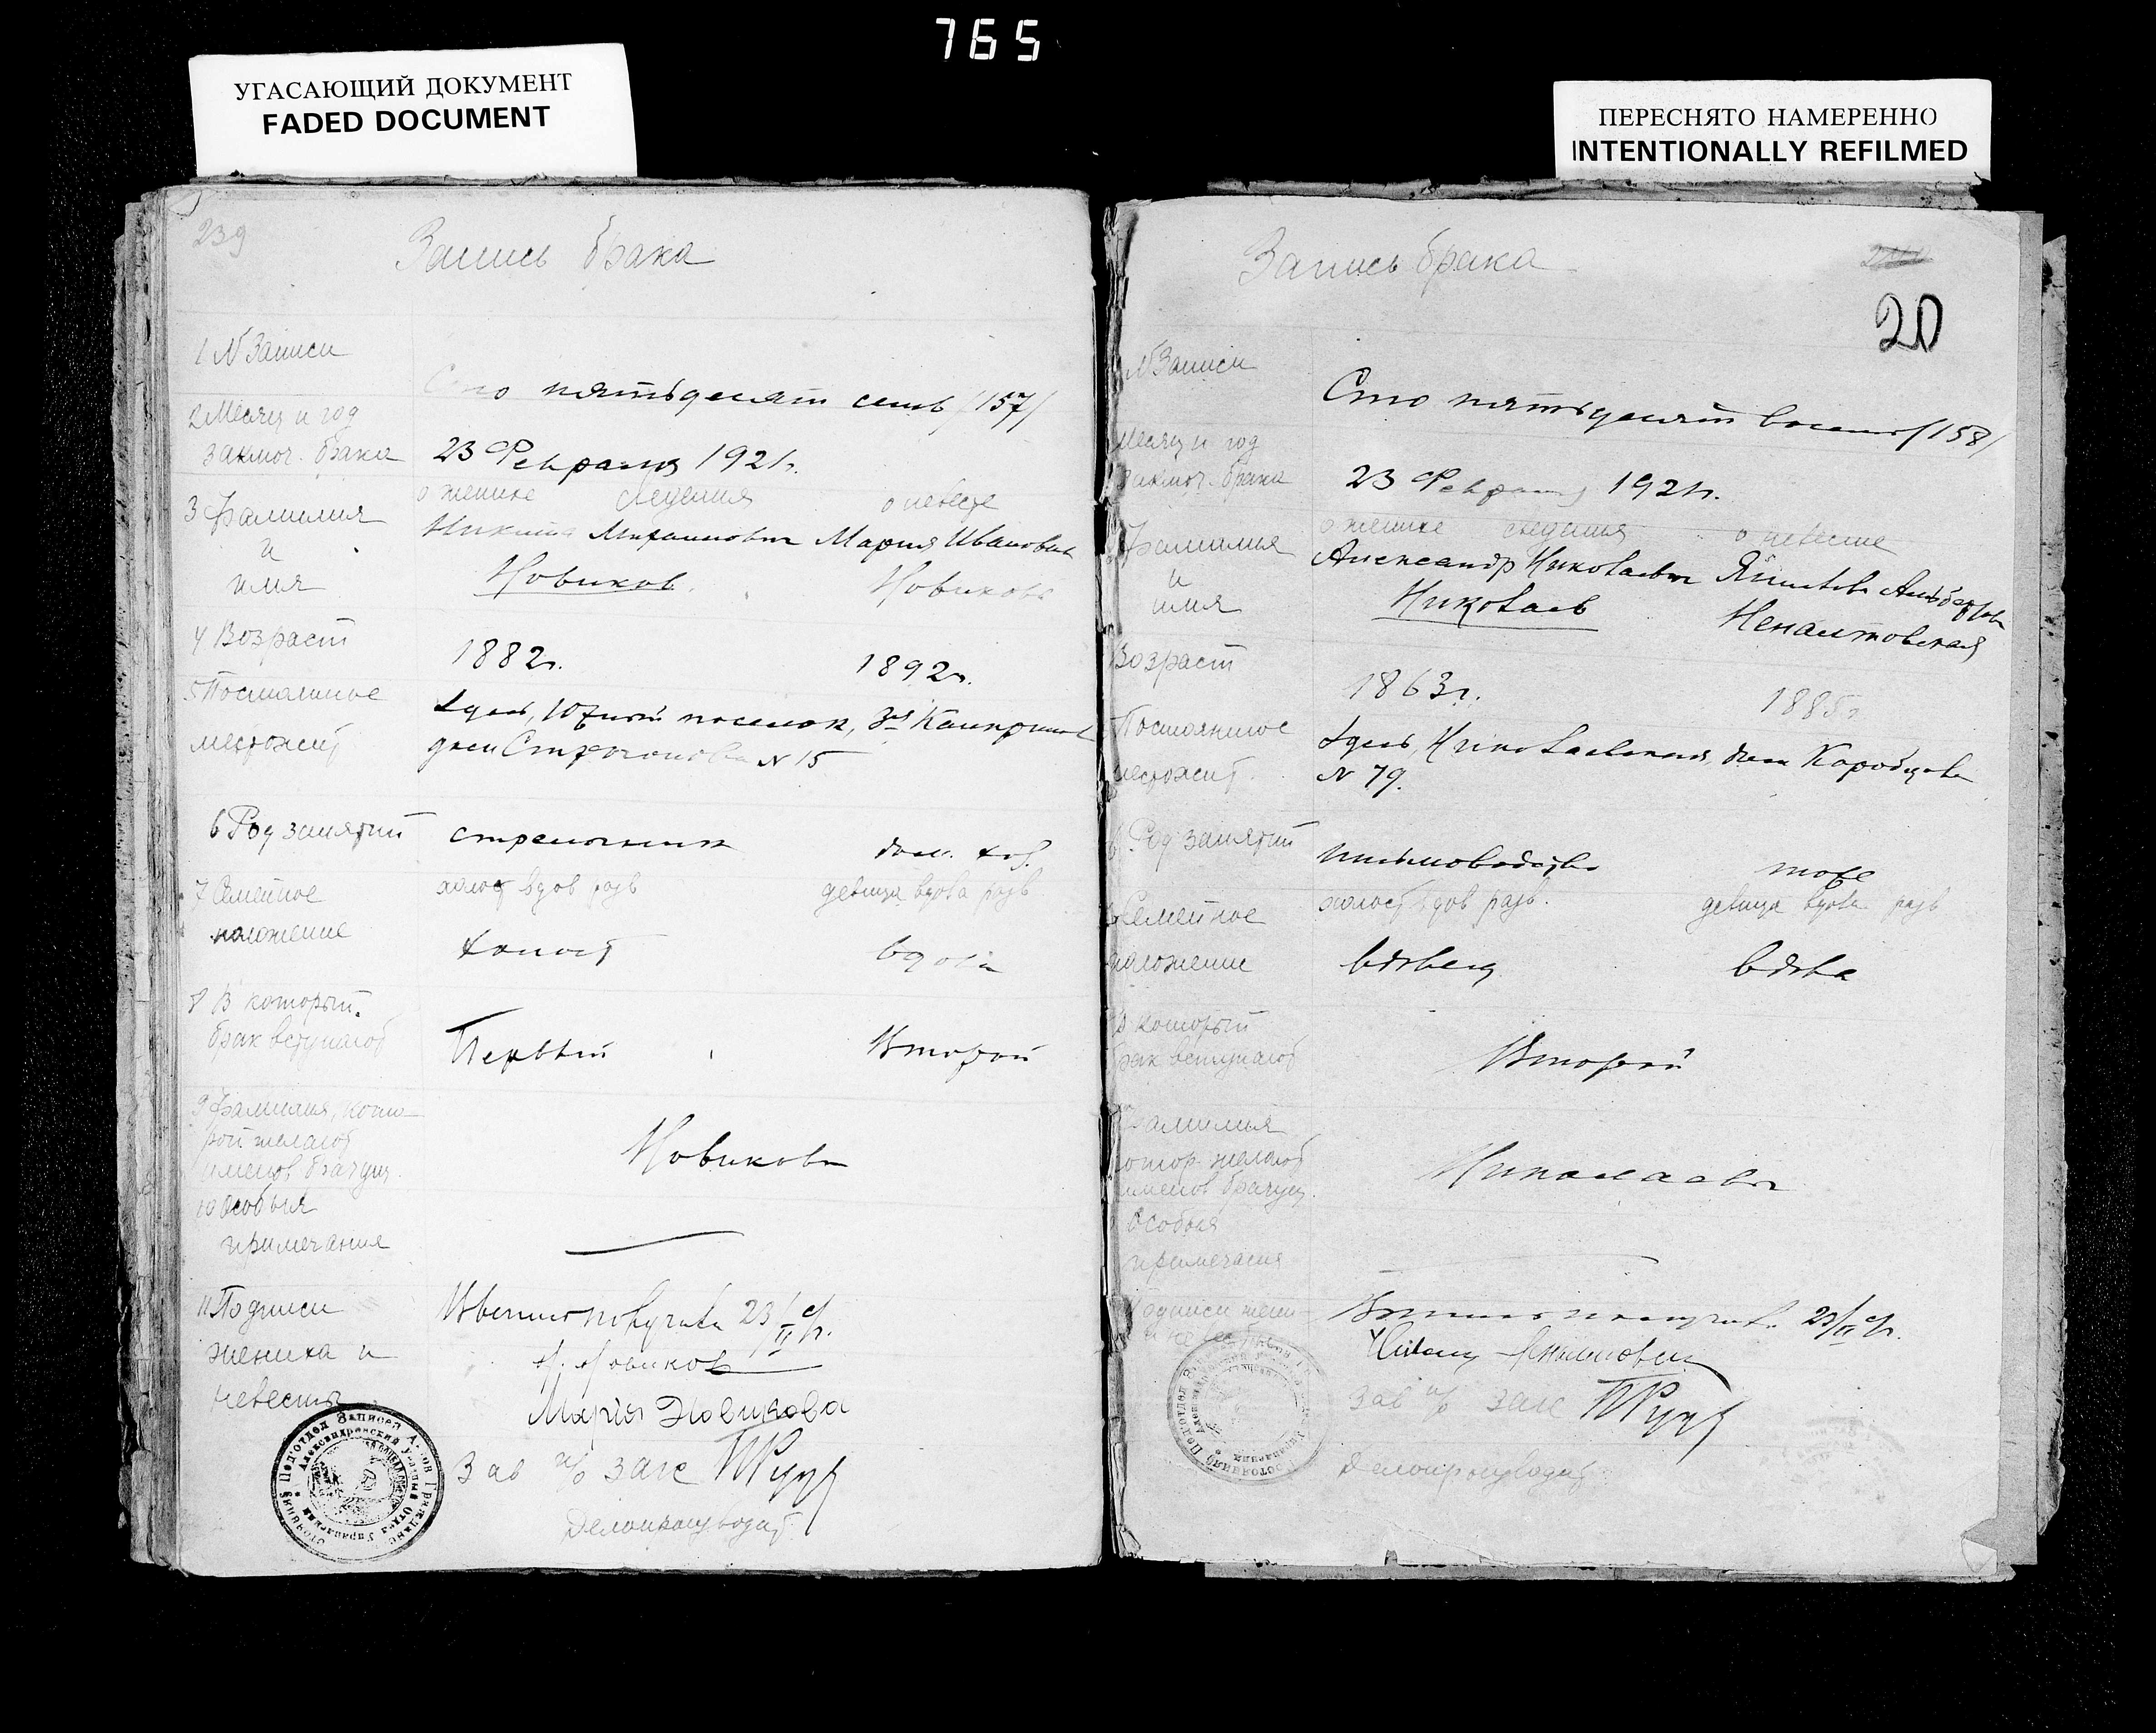 765
УГАСАЮЩИЙ ДОКУМЕНТ
FADED DOCUMENT
ПЕРЕСНЯТО НАМЕРЕННО
INTENTIONALLY REFILMED
239
Запись брака
1 № Записи
Сто пятьдесят семь /157/
2 Месяц и год
заключ. брака
23 Февраля 1921 г.
о женихе сведения о невесте
3 Фамилия
и
имя
Никита Михайлович Мария Ивановна
Новиков Новикова
4 Возраст
1882 г. 1892 г.
5 Постоянное
местожит
здесь, Южный поселок, 3я
дом № 15
6 Род занятий
стрелочник дом. хоз.
7 Семейное
положение
холост вдов разв девица вдова разв
холост вдова
8 В который
брак вступают
Первый Второй
9 Фамилия, кото
рой желают
именов брачущ.
Новиковы
10 Особыя
примечания
11 Подписи
жениха и
невесты
23/II с/г.
Н. Новиков
Мария Новикова
Зав п/о загс
Делопроизводит.
Подотдел Записей Актов Гражданс
Запись брака
20
№ Записи
Сто пятьдесят восемь /158/
Месяц и год
заключ. брака
23 Февраля 1921 г.
о женихе сведения о невесте
Фамилия
и
имя
Александр Николаевич
Николаев
Возраст
1863 г. 1885 г.
Постоянное
местожит.
здесь, Николаевская, дом
№ 79.
6 Род занятий
письмоводство тоже
холост вдов разв. девица вдова разв
Семейное
положение
вдовец вдова
В который
брак вступают
Второй
Фамилия
котор. желают
именов брачущ.
Николаевы
Особыя
примечания
Подписи жени
и невесты
23/II с/г.
Зав п/о загс
Делопроизводит.